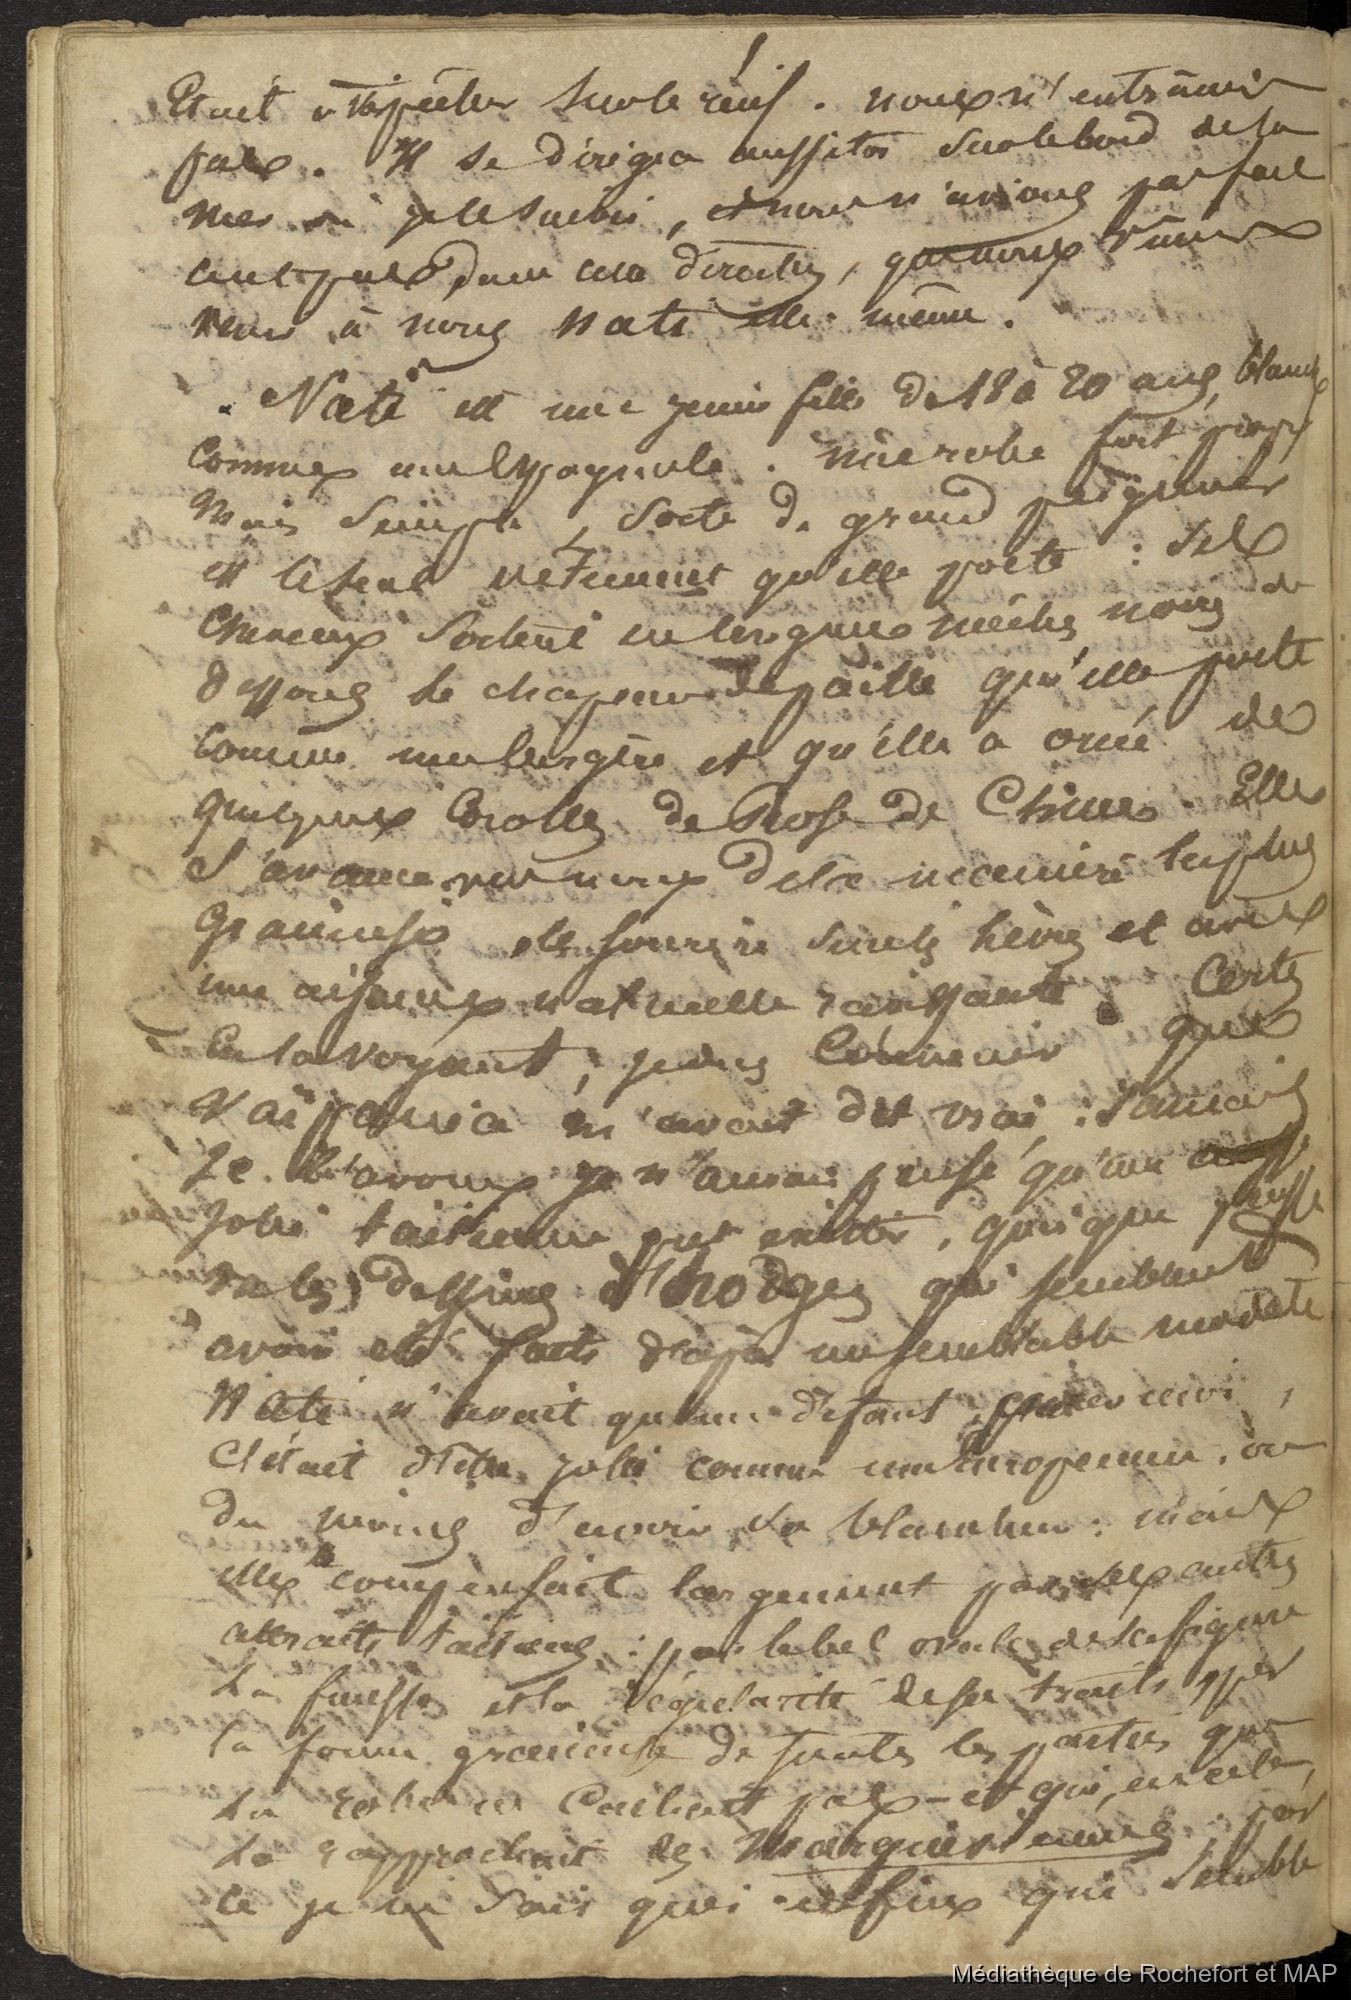 Etait à pêcher sur le récif. nous n'entrâmes
pas. Il se dirigea aussitôt sur le bord de la
mer où je le suivis, et nous n'avions pas fait
cent pas dans cette direction, que nous vîmes
venir à nous Nati elle-même.
Nati est une jeune fille de 18 à 20 ans, blanche
comme une Espagnole. une robe fort propre
mais simple, sorte de grand peignoir
est le seul vêtement qu'elle porte : ses
cheveux sortent en longues mèches noires de
dessous le chapeau de paille qu'elle porte
comme une bergère et qu'elle a orné de
quelques corolles de Rose de Chine. Elle
s'avance vers nous de la manière la plus
gracieuse, le sourire sur les lèvres et avec
une aisance naturelle ravissante. Certes
En la voyant, je dus convenir que
m'avait dit vrai : jamais
je l'avoue je n'aurais pensé qu'une aussi
jolie taïtienne put exister, quoique j'eusse
vu les dessins d'hodges qui semblent
avoir été faits d'après un semblable modèle
Nati n'avait qu'un défaut pour moi,
C'était d'être jolie comme une Européenne, ou
du moins d'en avoir la blancheur : mais
elle compensait largement par ses autres
attraits taïtiens : par le bel ovale de sa figure
la finesse et la régularité de ses traits, par
la forme gracieuse de toutes les parties que
la robe ne cachait pas – et qui, en cela,
la rapprochait des Marquésiennes, par
ce je ne sais quoi enfin qui semble
Médiathèque de Rochefort et MAP